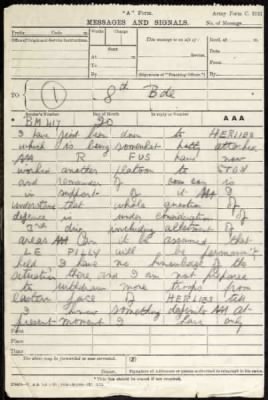 "A" Form.
Army Form C. 2121
MESSAGES AND SIGNALS.
No. of Message
Prefix Code m.
Words Charge
This message is on a/c of:
Recd. at m.
Office of Origin and Service Instructions.
Sent
Date
At m.
Service.
From
To
By
(Signature of "Franking Officer.")
By
TO
1 8th Bde
Sender's Number
Day of Month
In reply to Number
AAA
BM 417 20
I have just been down to HERLIES
which is being somewhat hotly attacked
AAA R FUS have now
worked another platoon to
and remainder of coy is
in support of it AAA I
understand that whole question of
defence is under consideration of
3rd div including allotment of
areas AAA Can it be assumed that
LE PILLY will be permanently
held I have no knowledge of the
situation there and I am not prepared
to withdraw more troops from
eastern face of HERLIES till
I know something definite AAA At
present moment I have only
From
Place
Time
The above may be forwarded as now corrected.
(Z)
Censor.
Signature of Addressor or person authorised to telegraph in his name.